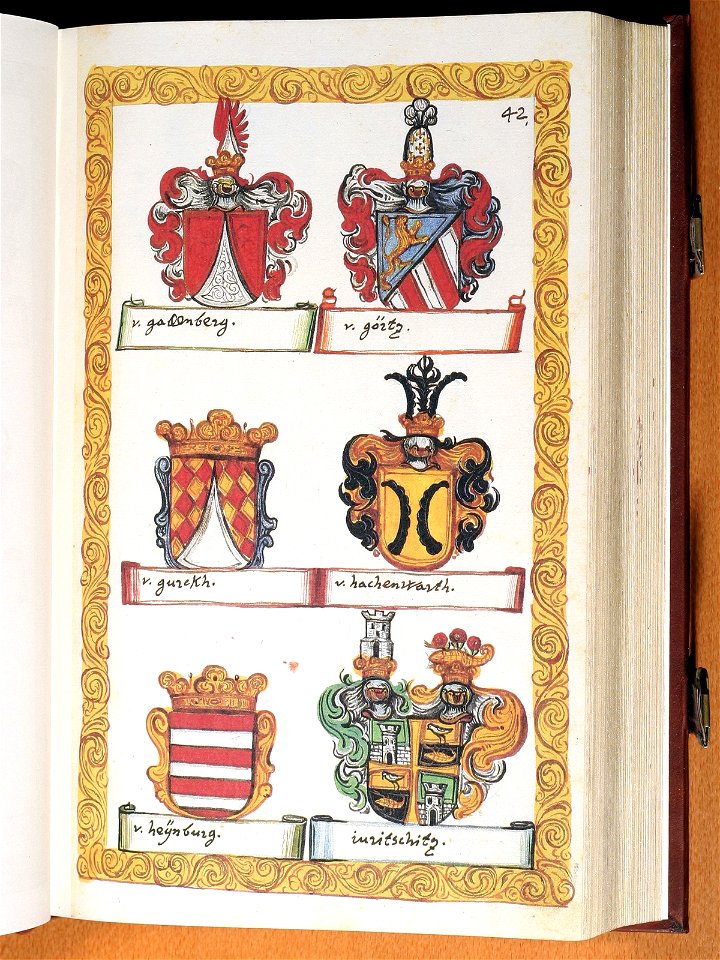 42.
v. gallenberg.
v. görtz.
v. gurckh.
v. hachenwarth.
v. heÿnburg.
iuritschitz.